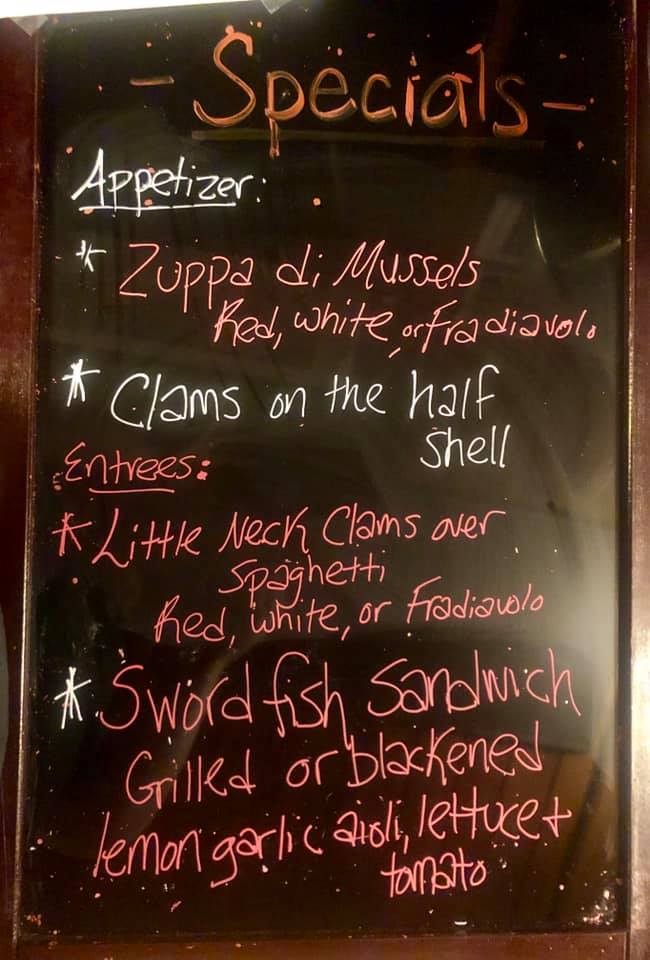 - Specials -
Appetizer:
* Zuppa di Mussels
Red, white, or Fradiavolo
* Clams on the half
shell
Entrees:
* Little Neck Clams over
Spaghetti
Red, white, or Fradiavolo
* Sword fish Sandwich
Grilled or blackened
lemon garlic aioli, lettuce +
tomato